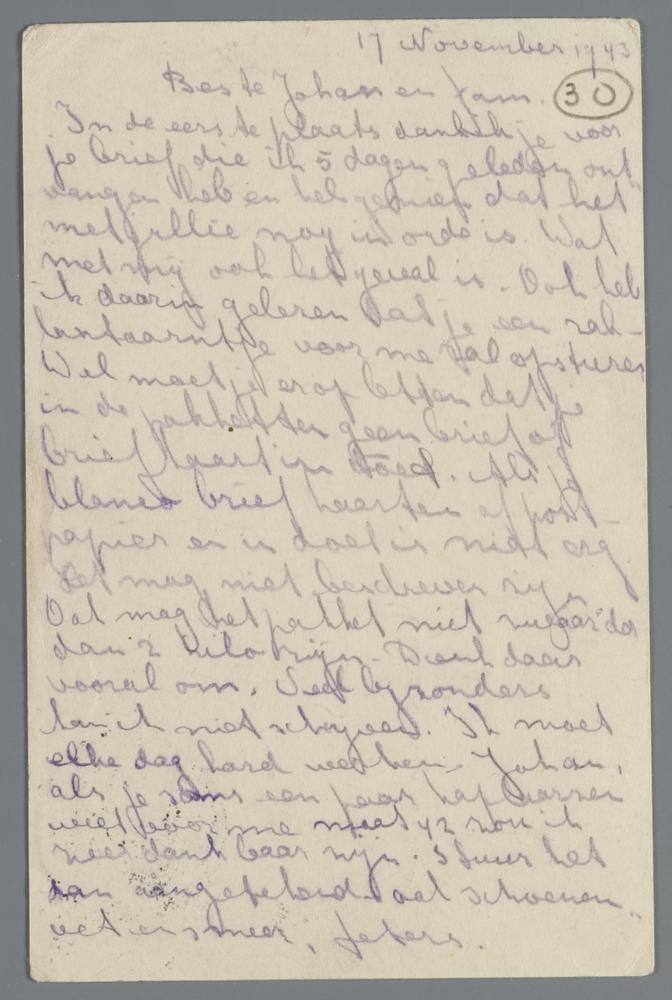 17 November 1943
Beste Johan en fam.
30
In de eerste plaats dank ik je voor
je brief die ik 5 dagen geleden ont
vangen heb en heb gezien dat het
met jullie nog in orde is. Wat
met mij ook het geval is. Ook heb
ik daarin gelezen dat je een zak-
lantaarntje voor me zal opsturen
Wel moet je erop letten dat je
in de pakketten geen brief of
briefkaart in doet. Als je
blanco briefkaarten of post-
papier er in doet is niet erg.
Het mag niet beschreven zijn
Ook mag het pakket niet zwaarder
dan 2 kilo zijn. Denk daar
vooral om. Veel bijzonders
kan ik niet schrijven. Ik moet
elke dag hard werken. Johan,
als je soms een paar laarzen
weet voor me maat 42 zou ik
zeer dankbaar zijn. Stuur het
dan aangetekend. ook schoenen
vet en smeer, feters.